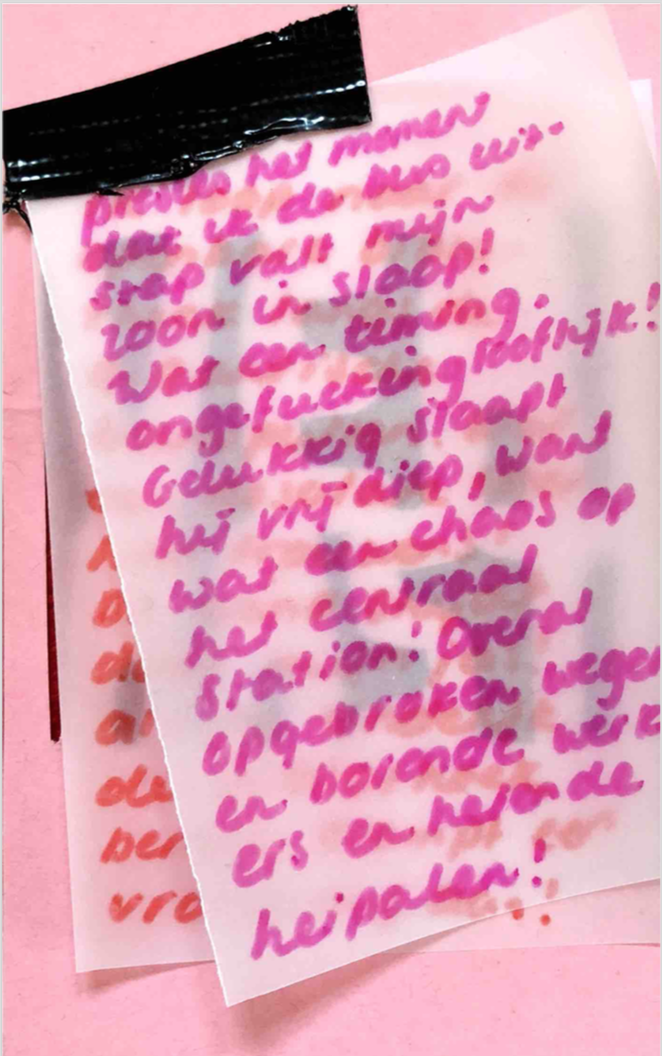 precies het moment
dat ik de bus uit-
stap valt mijn
zoon in slaap!
Wat een timing.
ongefuckinglooflijk!
Gelukkig slaapt
hij vrij diep, want
wat een chaos op
het centraal
station! Overal
opgebroken wegen
en borende werk
ers en heiende
heipalen!